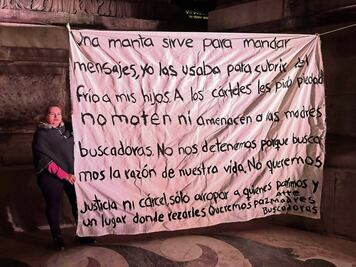 Una manta sirve para mandar
mensajes, yo las usaba para cubrir del
frío a mis hijos. A los cárteles les pido piedad
no maten ni amenacen a las madres
buscadoras. No nos detenemos porque busca
mos la razón de nuestra vida. No queremos
justicia ni cárcel, sólo arropar a quienes parimos y
un lugar donde rezarles. Queremos paz
Atte
Madres
Buscadoras